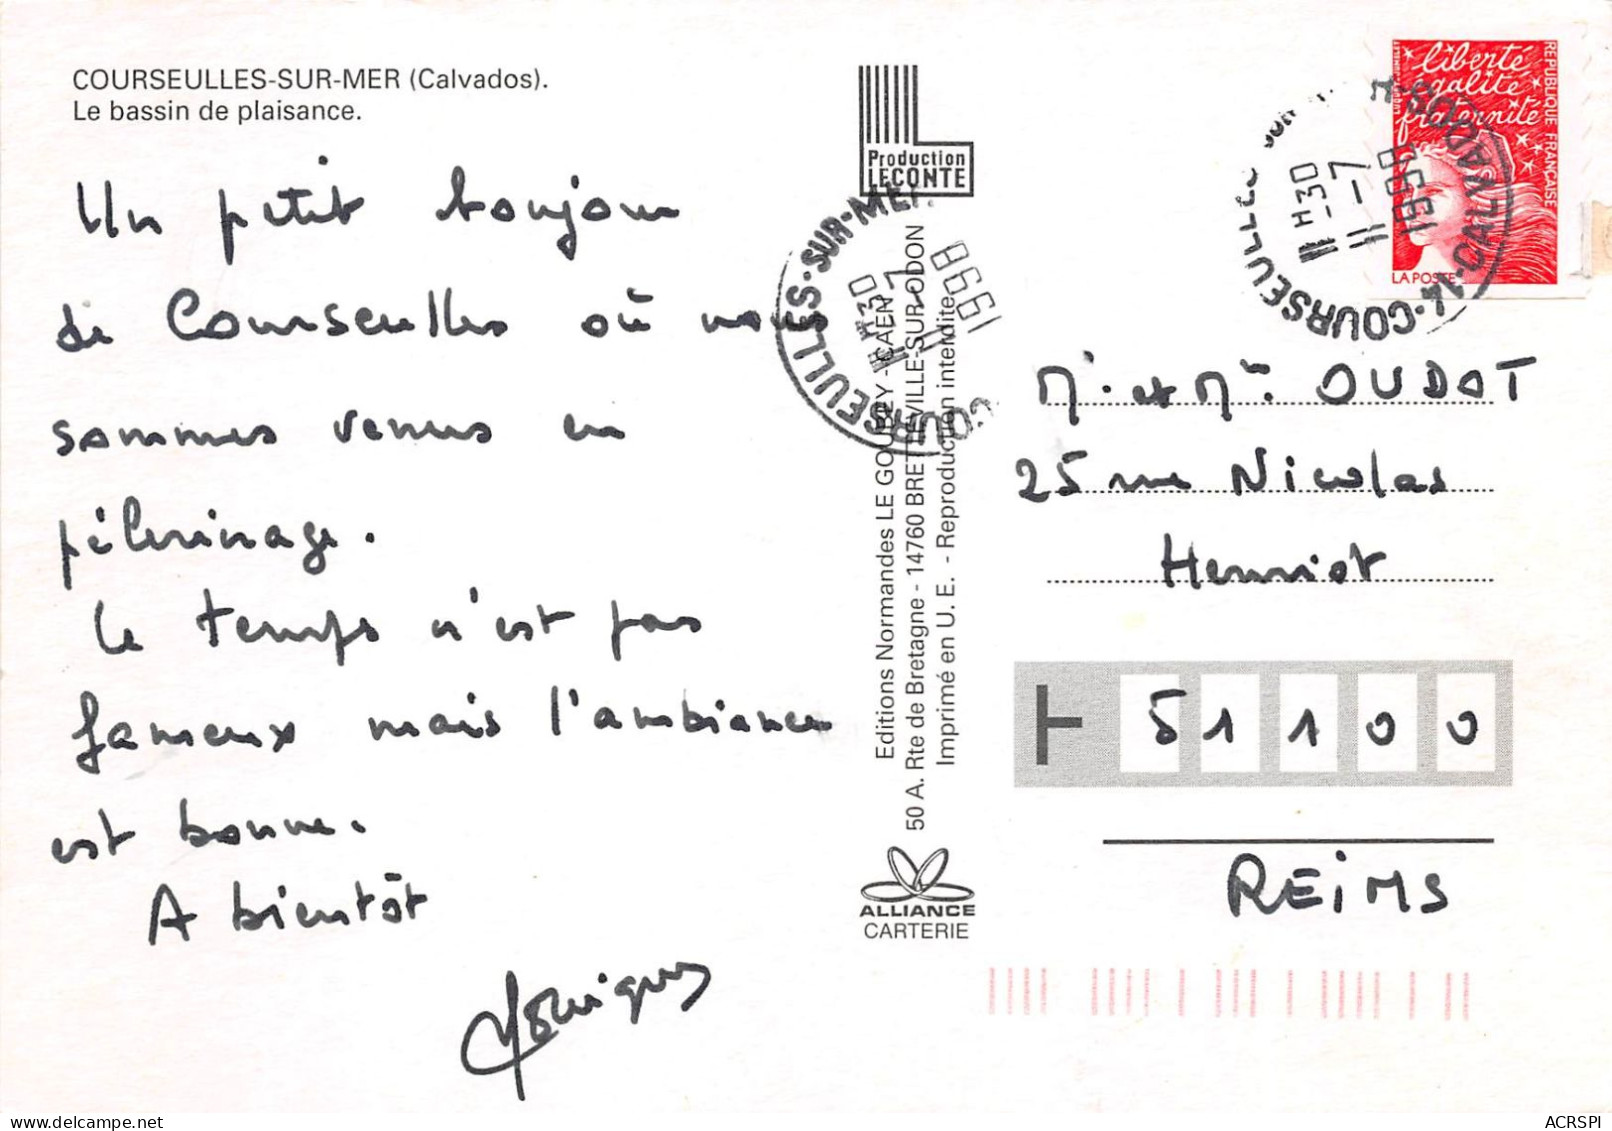 COURSEULLES-SUR-MER (Calvados).
Le bassin de plaisance.
Un petit bonjour
de Courseulles où nous
sommes venus en
pélerinage.
Le temps n'est pas
fameux mais l'ambiance
est bonne.
A bientôt
Production
LECONTE
COURSEULLES-SUR-MER
11 H 30
11 -7
1998
Editions Normandes LE GOUBEY - CAEN
50 A. Rte de Bretagne - 14760 BRETTEVILLE-SUR-ODON
Imprimé en U. E. - Reproduction interdite
ALLIANCE
CARTERIE
liberté
égalité
fraternité
REPUBLIQUE FRANÇAISE
LA POSTE
14-COURSEULLES SUR
CALVADOS
11 H 30
11 -7
1998
Mr. et Me. OUDOT
25 rue Nicolas
Henriot
51100
REIMS
ACRSPI